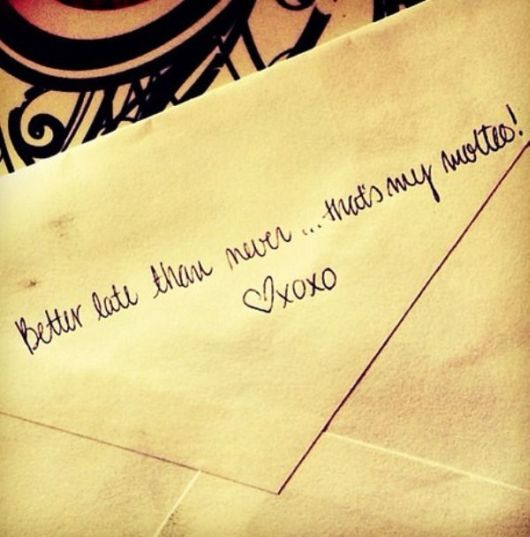 Better late than never ... that's my mottoo!
♡xoxo